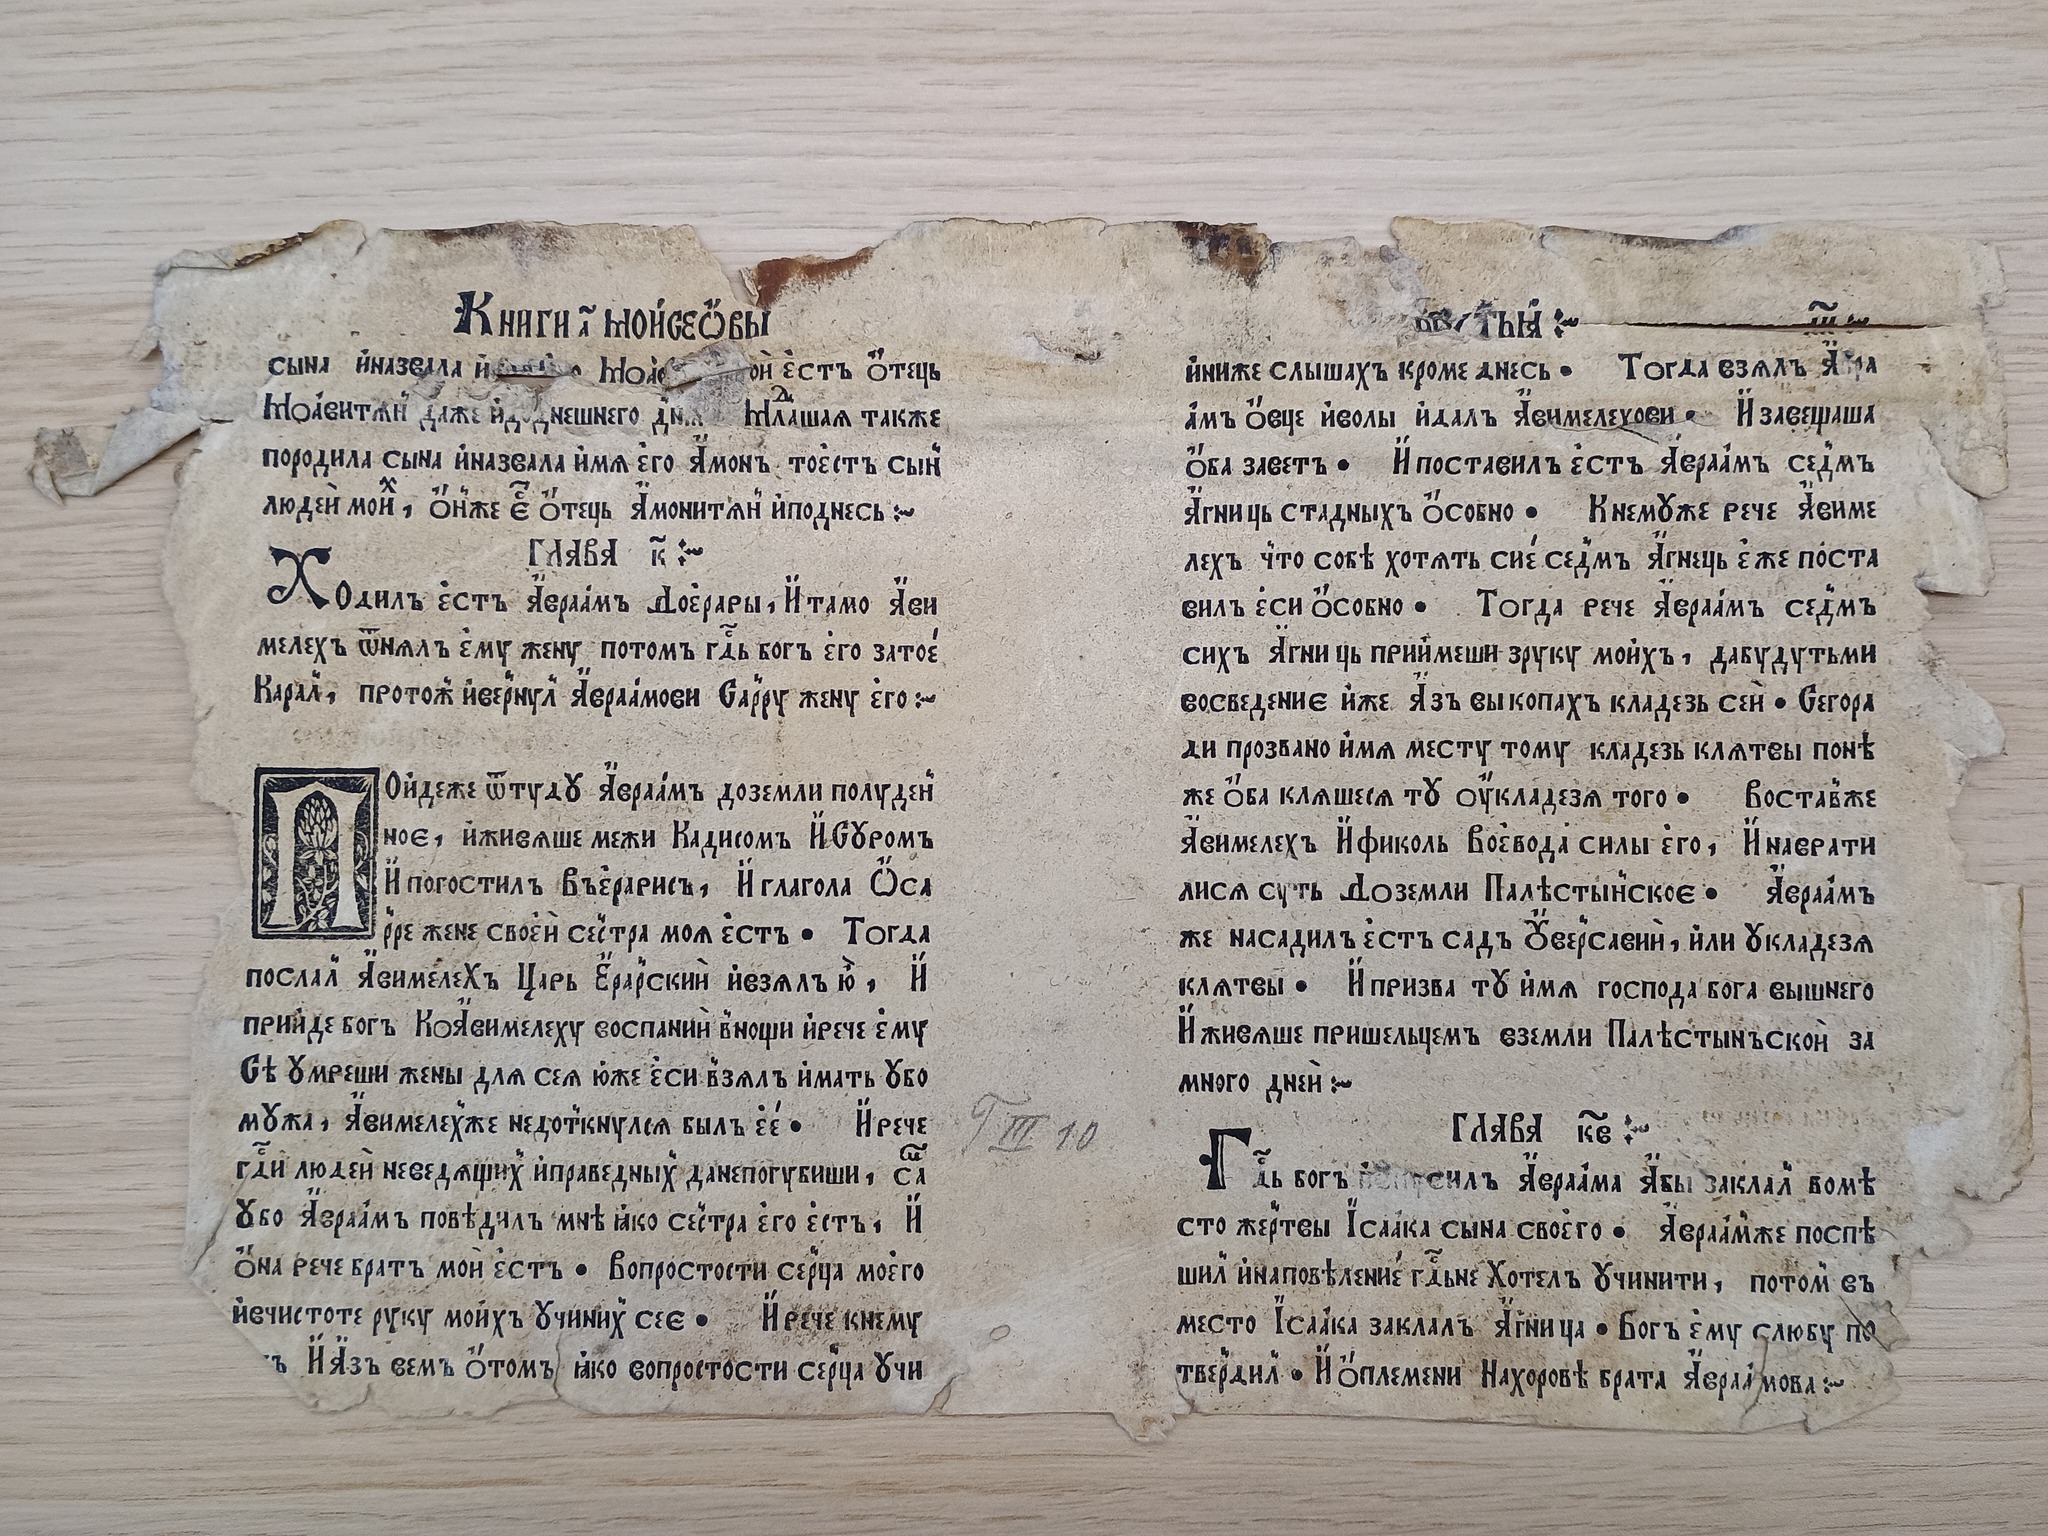 Книги а҃ Мойсеѡвы
сына йназвала й Моа ой е́стъ ѻ҆тець
Моа́витѧⷩ даже йдоднешнего днѧ Млⷣашаѧ также
породила сына йназвала ймѧ его А҆монъ тоестъ сыⷩ
людей моиⷯ, ѻ҆нже е҃ ѻ҆тець А҆монитѧⷩ йподнесь:~
ГЛАВА к҃ :~
Ходилъ е́стъ А҆враа́мъ Дое́рары, И҆тамо А҆ви
мелехъ ѿнялъ е́му жену потомъ гⷭ҇дь богъ его затое́
Караⷧ, протоⷤ йвернуⷧ А҆враа́мови Сарру жену его:~
ПОйдеже ѿтуду А҆враа́мъ доземли полудеⷩ
ное, йживѧше межи Кадисомъ И҆Суромъ
И҆погостилъ Въе́рарисъ, И҆глагола Ѡ҆са
рре жене своей сестра моѧ е́стъ • Тогда
послаⷧ А҆вимелехъ Царь Е҆рарский йвзѧлъ ю̀, И҆
прийде богъ КоА҆вимелеху воспаний вноши йрече е́му
Сѣ умреши жены длѧ сеѧ юже е́си взѧлъ имать убо
мужа, А҆вимелехже недоткнулсѧ былъ ее́ • И҆рече
гⷭ҇ди людей неведѧщиⷯ йправедныⷯ данепогубиши, саⷨ
убо А҆враа́мъ повѣдилъ мнѣ ꙗко сестра его е́сть, И҆
ѻ҆на рече братъ мой е́стъ • Вопростости серца моего
йвчистоте руку мойхъ учиниⷯ сее • И҆рече кнему
И҆А҆зъ вемъ ѻ҆томъ ꙗко вопростости серца учи
тыѧ :~ м҃ :~
йниже слышахъ кроме днесь • Тогда взѧлъ А҆вра
амъ ѻ҆вце йволы йдалъ А҆вимелехови • И҆завещаша
ѻ҆ба заветъ • И҆поставилъ е́стъ А҆враа́мъ седмъ
А҆гниць стадныхъ ѻ҆собно • Кнемуже рече А҆виме
лехъ что собѣ хотѧть сие́ седмъ А҆гнець е́же поста
вилъ е́си ѻ҆собно • Тогда рече А҆враа́мъ седмъ
сихъ А҆гниць приймеши зруку мойхъ, дабудутьми
восведение йже А҆зъ выкопахъ кладезь сей • Сегора
ди прозвано ймѧ месту тому кладезь клѧтвы понѣ
же ѻ҆ба клѧшесѧ ту оукладезѧ того • Воставже
А҆вимелехъ И҆фиколь Воевода силы его, И҆наврати
лисѧ суть Доземли Палѣстынское • А҆враа́мъ
же насадилъ е́стъ садъ Уверсавий, йли укладезѧ
клѧтвы • И҆призва ту ймѧ господа бога вышнего
И҆живѧше пришельцемъ вземли Палѣстынъской за
много дней :~
ГЛАВА кв҃ :~
Гⷭ҇дь богъ силъ А҆враа́ма А҆бы заклаⷧ вомѣ
сто жертвы Ісаа́ка сына своего • А҆враа́мже поспѣ
шиⷧ йнаповѣление́ гⷭ҇дьне Хотелъ учинити, потоⷨ въ
место Ісаа́ка заклалъ А҆гница • Богъ е́му слюбу по
твердиⷧ • И҆ѻ҆племени Нахоровѣ брата А҆враа́мова:~
T III 10